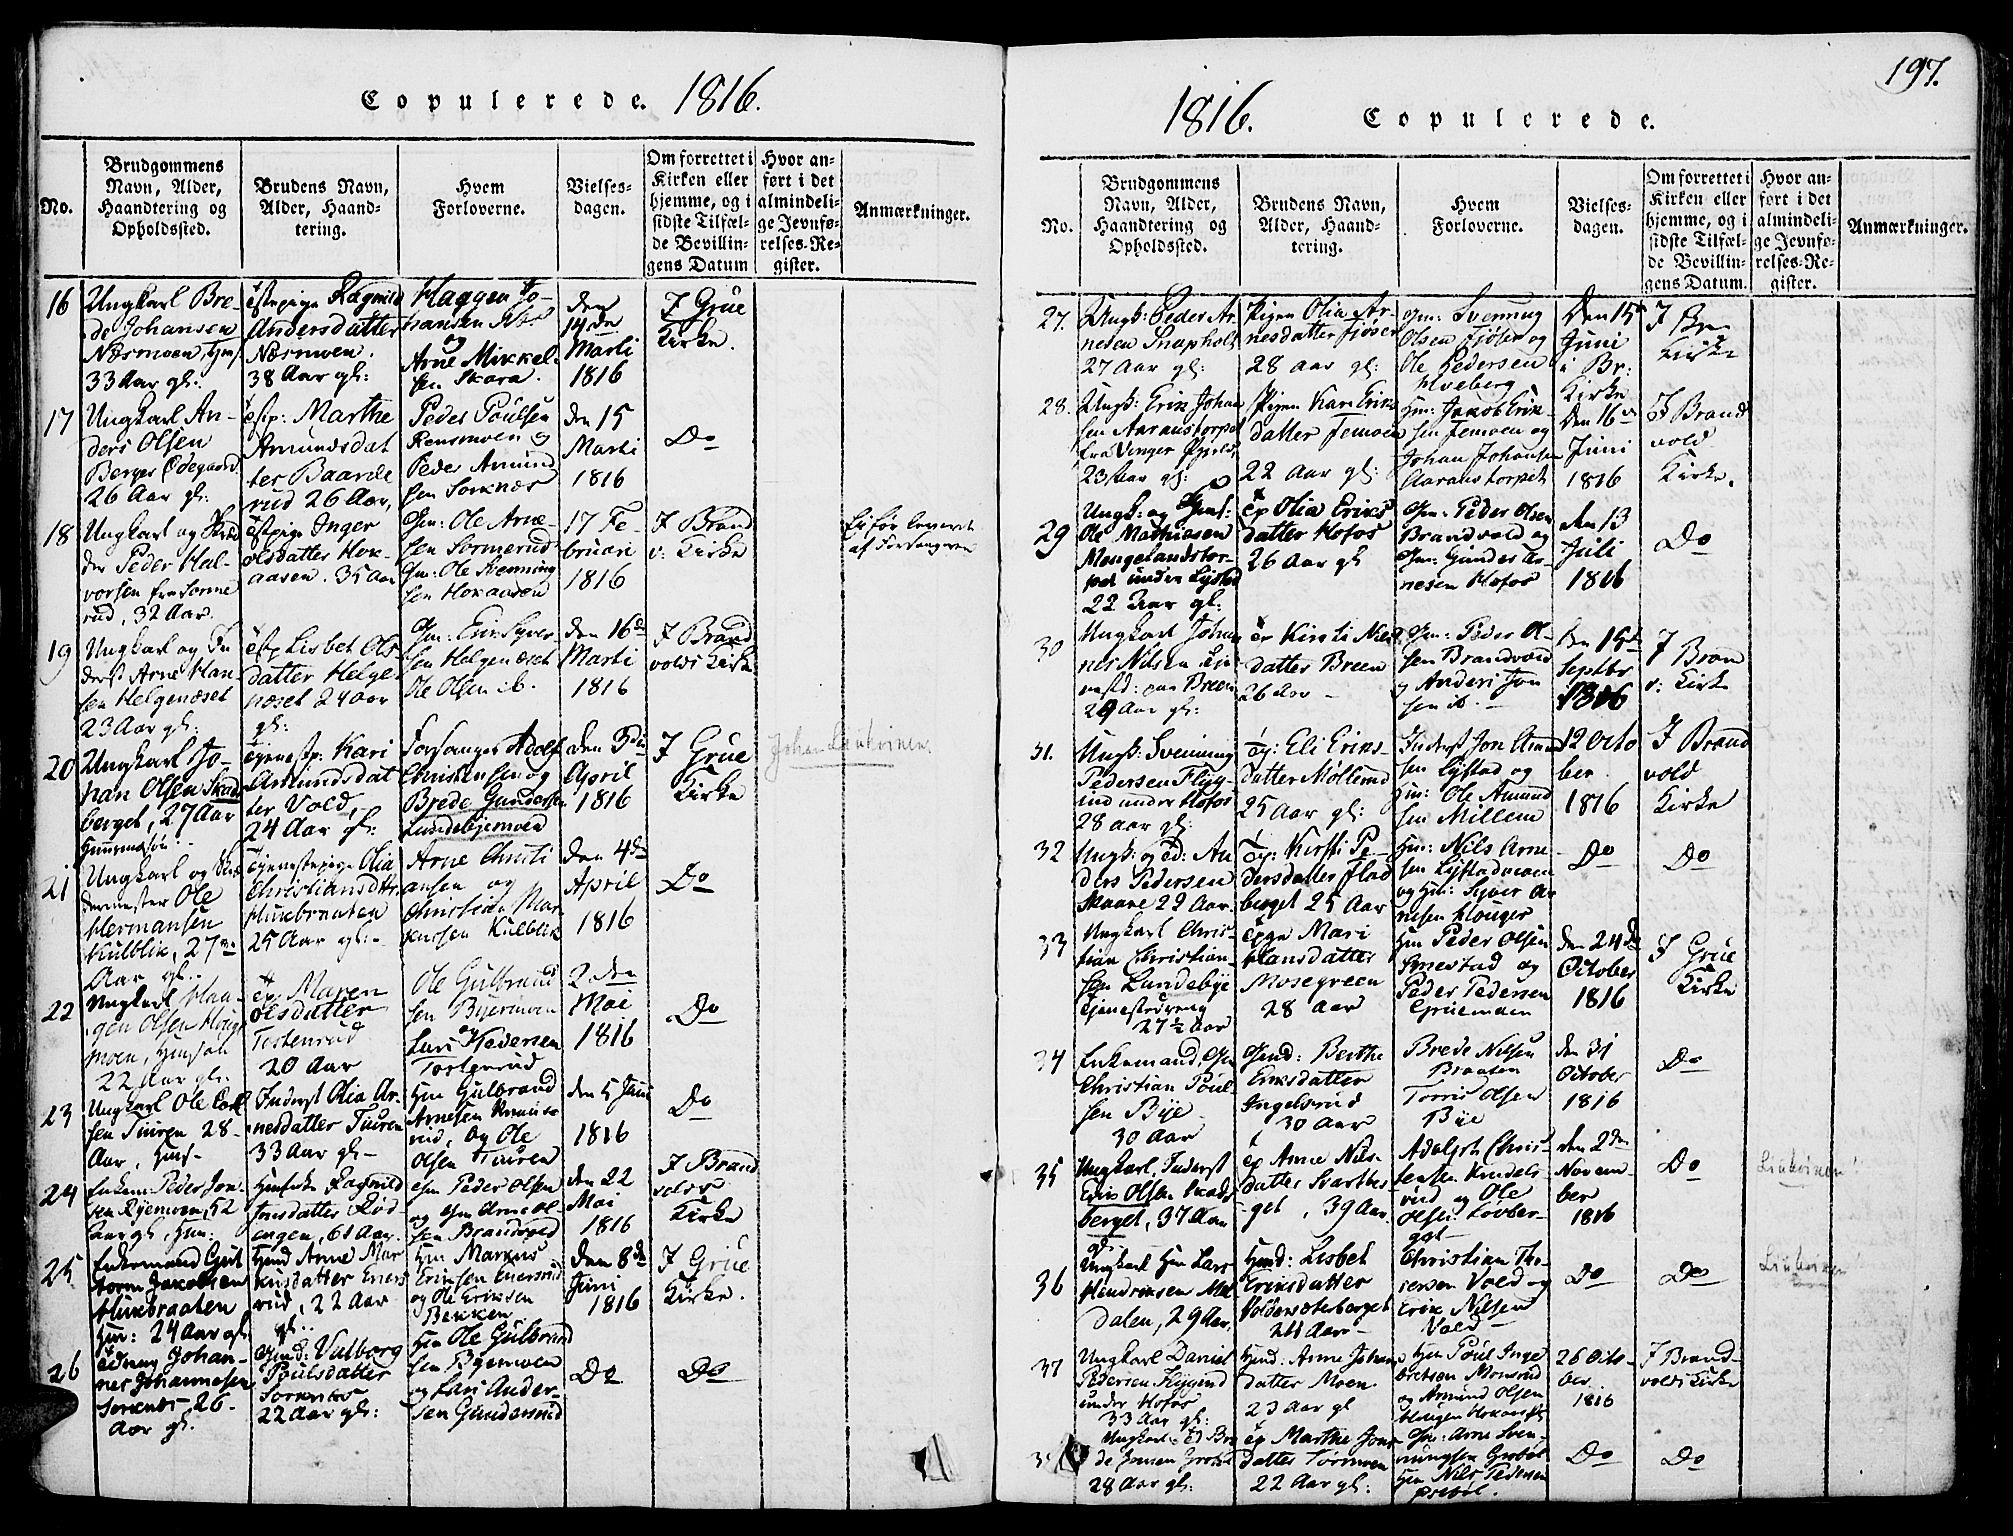 Copulerede. 1816.
No.
Brudgommens
Navn, Alder,
Haandtering og
Opholdssted.
Brudens Navn,
Alder, Haand-
tering.
Hvem
Forloverne.
Vielses-
dagen.
Om forrettet i
Kirken eller
hjemme, og i
sidste Tilfæl-
de Bevillin-
gens Datum
Hvor an-
ført i det
almindeli-
ge Jevnfø-
relses-Re-
gister.
Anmærkninger.
16
Ungkarl Bre-
de Johansen
Nærmoen
33 Aar gl:
Ragnild
Andersdatter
Nærmoen.
38 Aar gl:
Haagen Jo-
hansen
og
Arne Mikkel-
sen Skara.
den
14de
Marti
1816
I Grue
Kirke.
17
Ungkarl An-
ders Olsen
Berger Ødegaard
26 Aar gl:
Marthe
Amundsdat
ter Baarde
rud 26 Aar,
Peder Poulsen
Rensmoen og
Peder Amund
sen Sorknæs
den 15
Marti
1816
Do
18
Ungkarl og
Peder Hal-
vorsen fra Sorme
rud, 32 Aar.
Inger
Olsdatter Hok-
aasen. 35 Aar
Ole Arne-
sen Sormerud
Ole Svenning
sen Hokaasen
17 Fe-
bruari
1816
I Brand
v: Kirke
Ei før leveret
af Forsangeren
19
Ungkarl og In
derst Arne Han-
sen Helgenæset
23 Aar gl:
Lisbet Ols
datter Helge-
næset 24 Aar
gl:
Erik Syver
sen Helgenæset
Ole Olsen ib.
den 16de
Marti
1816
I Brand
volds Kirke
20
Ungkarl Jo-
han Olsen Skads
berget, 27 Aar
Kari
Amundsdat
ter Vold,
24 Aar gl:
Forsanger Adolf
Christensen og
Brede Gundersen
Lundebyemoen
den 3die
April
1816
I Grue
Kirke
Johan Liukoinen.
21
Ungkarl og
Ole
Hermansen
Kulblik, 27
Aar gl.
Tjenestepige Olia
Christiansdtr.
Huusbraaten
25 Aar gl:
Arne Christi
ansen og
Christian Mar
kussen Kulblik
den 4de
April
1816
Do
22
Ungkarl Haa-
gen Olsen Houg
moen,
22 Aar gl:
Maren
Olsdatter
Tostenrud
20 Aar
Ole Gulbrand
sen Byermoen
og
Lars Pedersen
Tostenrud
2 den
Mai
1816
Do
23
Ungkarl Ole
sen Tuuren 28-
Aar,
Inderst Olia Ar-
nesdatter Tuuren
33 Aar gl-
Gulbrand
Arnesen
rud, og Ole
Olsen Tuuren
den 5 Juni
1816
Do
24
Enkem: Peder Jon-
sen Byermoen, 52
Aar gl,
Ragnild
Jonsdatter Rød-
engen, 61 Aar.
Peder Olsen
og Arne Ol
sen Brandvold
den 22
Mai
1816
I Brand
volds
Kirke
25
Enkemand Gut
torm Jakobsen
Huusbraaten
24 Aar gl.
Anne Mar
kusdatter Eners
rud, 22 Aar
gl.
Markus
Eriksen Enersrud
og Ole Eriksen
Bakken
den 8de
Juni
1816
I Grue
Kirke.
26
Johan-
nes Johannesen
Sorknæs, 26-
Aar gl.
Valborg
Poulsdatter
Sorknæs
22 Aar gl:
Ole Gulbrand
sen Byermoen
og Lars Ander-
sen Gundersrud
Do
Do
1816. Copulerede. 197.
No.
Brudgommens
Navn, Alder,
Haandtering og
Opholdssted.
Brudens Navn,
Alder, Haand-
tering.
Hvem
Forloverne.
Vielses-
dagen.
Om forrettet i
Kirken eller
hjemme, og i
sidste Tilfæl-
de Bevillin-
gens Datum.
Hvor an-
ført i det
almindeli-
ge Jevnfø-
relses-Re-
gister.
Anmærkninger.
27.
Ungk: Peder Ar
nesen Snapholt
27 Aar gl:
Pigen Olia Ar-
nesdatter Fjøser
28 aar gl:
Svenning
Olsen Fjøser og
Ole Pedersen
Hveberg
Den 15
Juni
i Br:
Kirke
I Bra
Kirke
28.
Ungk: Erik Johan
sen Aaranstorpet
fra Vinger
23 Aar gl:
Pigen Kari Eriks
datter Jemoen
22 Aar gl:
Jakob Erik-
sen Jemoen og
Johan Johansen
Aaranstorpet
Den 16
Juni
1816
I Brand
vold
Kirke.
29
Ungk: og
Ole Mathiasen
Mengelandstor-
pet under Lystad
22 Aar gl:
Olia Eriks
datter Hofos
26 Aar gl
Peder Olsen
Brandvold og
Gunder Ar-
nesen Hofos
den 13
Juli
1816
Do
30
Ungkarl Johan
nes Nilsen
Breen
29 Aar gl:
Kirsti Niels
datter Breen
26 Aar -
Peder O-
sen Brandvold
og Anders Jon
sen ib. -
Septbr
1816
I Bran
v: Kirke
31.
Ungk: Svenning
Pedersen Flyg-
ind under Hofos
28 aar gl:
Eli Eriks-
datter Møllerud
25 Aar gl:
Inderst Jon Amund
sen Lystad og
Ole Amund
sen Millem
12 Octo
ber
1816
I Brand
vold
Kirke
32
Ungk: og An
ders Pedersen
Skaare 22 Aar.
Kirsti Pe-
dersdatter Flad
berget 25 Aar
Nils Arne-
sen Lystadmoen
og Syver Ar
nesen Houger
Do
Do
33
Ungkarl Chris-
tian Christian-
sen Lundebye
Tjenestedreng
27½ Aar
Mari
Hansdatter
Mosegreen
28 Aar
Peder Olsen
Smestad og
Peder Pedersen
Gruemoen
den 24de
October
1816
I Grue
Kirke
34
Enkemand,
Christian Poul
sen Bye
30 Aar
Berthe
Eriksdatter
Ingelsrud
30 Aar
Brede Nilsen
Braaten
Torris Olsen
Bye
den 31
October
1816
Do
35
Ungkarl, Inderst
Erik Olsen Skads
berget, 37 Aar
gl.
Anne Nils-
datter Svartber
get, 39 Aar.
Adolph Chris-
tensen Kindels-
rud og Ole
Olsen Lovber-
get -
den 2den
Novem-
ber
1816
Do
Liukoinen!
36
Ungkarl Lars
Hendriksen Møl
dalen, 29 Aar.
Lisbet
Eriksdatter
Voldens
24 Aar -
Christian Tho-
resen Vold og
Erik Nilsen
Vold -
Do
Do
Liukoinen
37
Ungkarl Daniel
Pedersen Flygind
under Hofos
33 Aar gl:
Anne Johans
datter Moen
23 Aar gl
Poul Inge
bretsen Monsrud
og Amund Olsen
Hougen
26 Octo-
ber
1816
I Brand-
volds Kirke
Ungkarl: Bre
de Jonsen
28 Aar gl:
Marthe Jons
datter Tormoen
22 Aar gl:
Arne Sven-
nungsen Grøset
Nils Pedersen
Do
Do